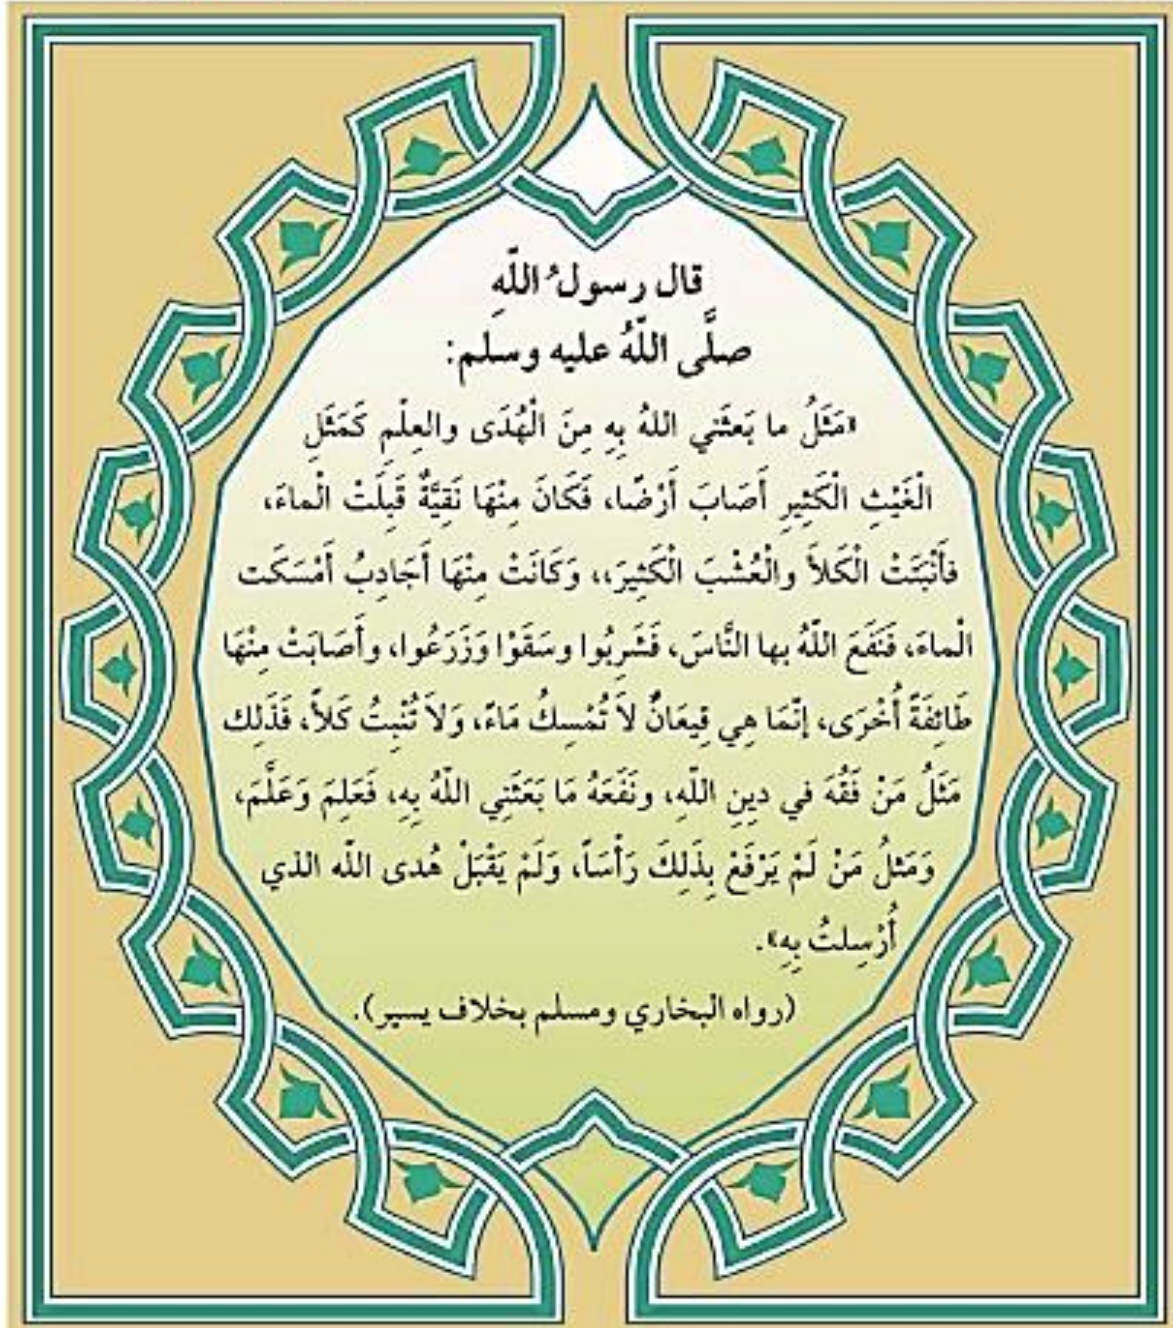 قال رسولُ اللّهِ
صلَّى اللّهُ عليه وسلم:
«مَثَلُ ما بَعثَني اللهُ بِهِ مِنَ الْهُدَى والعِلْمِ كَمَثَلِ
الْغَيْثِ الْكَثِيرِ أَصَابَ أَرْضًا، فَكَانَ مِنْهَا نَقِيَّةٌ قَبِلَتْ الْماءَ،
فأَنْبَتَتْ الْكَلأَ والْعُشْبَ الْكَثِيرَ،، وَكَانَتْ مِنْهَا أَجَادِبُ أَمْسَكَت
الْماءَ، فَنَفَعَ اللّهُ بها النَّاسَ، فَشَرِبُوا وسَقَوْا وَزَرَعُوا، وأَصَابَتْ مِنْهَا
طَائِفَةً أُخْرَى، إنّمَا هِي قِيعَانٌ لاَ تُمْسِكُ مَاءً، وَلاَ تُنْبِتُ كَلأً، فَذَلِك
مَثَلُ مَنْ فَقُهَ في دِينِ اللّهِ، ونَفَعَهُ مَا بَعَثَنِي اللّهُ بِهِ، فَعَلِمَ وَعَلَّمَ،
وَمَثلُ مَنْ لَمْ يَرْفَعْ بِذَلِكَ رَأْسَاً، وَلَمْ يَقْبَلْ هُدى اللّه الذي
أُرْسِلتُ بِهِ».
(رواه البخاري ومسلم بخلاف يسير).